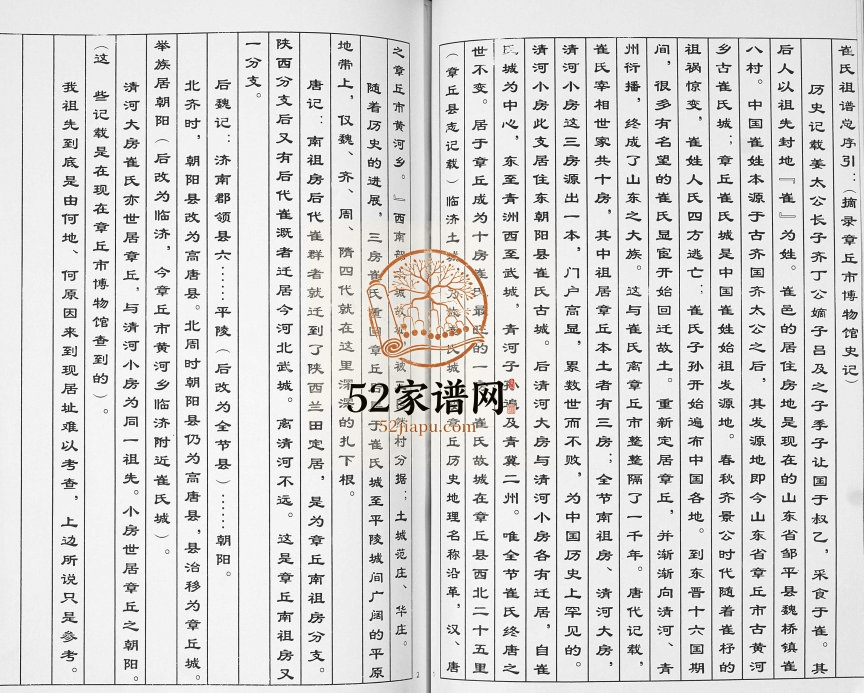 崔氏祖谱总序引：（摘录章丘市博物馆史记）
历史记载姜太公长子齐丁公嫡子吕及之子季子让国于叔乙，采食于崔。其
后人以祖先封地『崔』为姓。崔邑的居住房地是现在的山东省邹平县魏桥镇崔
八村。中国崔姓本源于古齐国齐太公之后，其发源地即今山东省章丘市古黄河
乡古崔氏城；章丘崔氏城是中国崔姓始祖发源地。春秋齐景公时代随着崔杼的
祖祸惊变，崔姓人氏四方逃亡；崔氏子孙开始遍布中国各地。到东晋十六国期
间，很多有名望的崔氏显宦开始回迁故土。重新定居章丘，并渐渐向清河、青
州衍播，终成了山东之大族。这与崔氏离章丘市整整隔了一千年。唐代记载，
崔氏宰相世家共十房，其中祖居章丘本土者有三房；全节南祖房、清河大房，
清河小房这三房源出一本，门户高显，累数世而不败，为中国历史上罕见的。
清河小房此支居住东朝阳县崔氏古城。后清河大房与清河小房各有迁居，自崔
氏城为中心，东至青洲西至武城，青河子孙遍及青冀二州。唯全节崔氏终唐之
世不变。居于章丘成为十房崔氏最旺的一 崔氏故城在章丘县西北二十五里
（章丘县志记载）临济土城 崔氏城 章丘历史地理名称沿革，汉、唐
之章丘市黄河乡。』西南 城故 被 村分据；土城范庄、华庄。
随着历史的进展，三房崔氏 章丘 于崔氏城至平陵城间广阔的平原
地带上，仅魏、齐、周、隋四代就在这里深深的扎下根。
唐记：南祖房后代崔群者就迁到了陕西兰田定居，是为章丘南祖房分支。
陕西分支后又有后代崔溉者迁居今河北武城。离清河不远。这是章丘南祖房又
一分支。
后魏记：济南郡领县六……平陵（后改为全节县）……朝阳。
北齐时，朝阳县改为高唐县。北周时朝阳县仍为高唐县，县治移为章丘城。
举族居朝阳（后改为临济，今章丘市黄河乡临济附近崔氏城）。
清河大房崔氏亦世居章丘，与清河小房为同一祖先。小房世居章丘之朝阳。
（这 些记载是在现在章丘市博物馆查到的）。
我祖先到底是由何地、何原因来到现居址难以考查，上边所说只是参考。
52家谱网
52jiapu.com